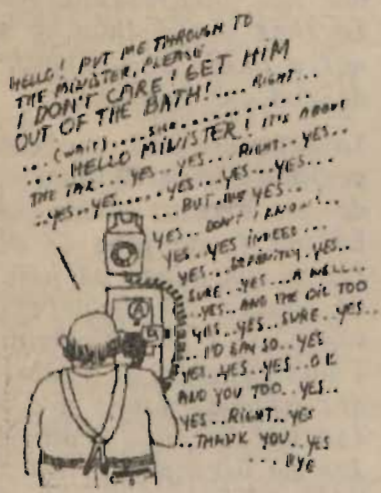 HELLO! PUT ME THROUGH TO
THE MINISTER, PLEASE
I DON'T CARE! GET HIM
OUT OF THE BATH!.... RIGHT...
... (WAIT)..... SURE............
.... HELLO MINISTER! IT'S ABOUT
THE TAX... YES.. YES... RIGHT.. YES..
..YES..YES..... YES...YES...YES....
...BUT... YES..
YES.. DON'T I KNOW...
YES..YES INDEED...
YES... DEFINITLY..YES..
SURE..YES...A WELL..
..YES..AND THE OIL TOO
YES..YES..SURE..YES..
..I'D SAY SO..YES
YES..YES..YES..OK
AND YOU TOO..YES..
YES..RIGHT..YES
..THANK YOU..YES
...BYE
A